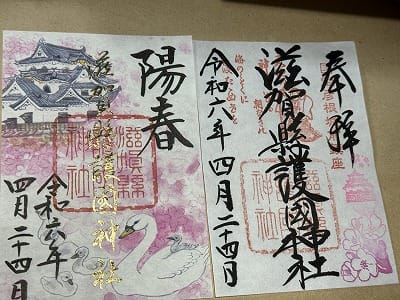 奉拝
滋賀縣護國神社
令和六年四月二十四日
滋賀縣護國神社
陽春
滋賀縣護國神社
滋賀縣護國神社
令和六年
四月二十四日